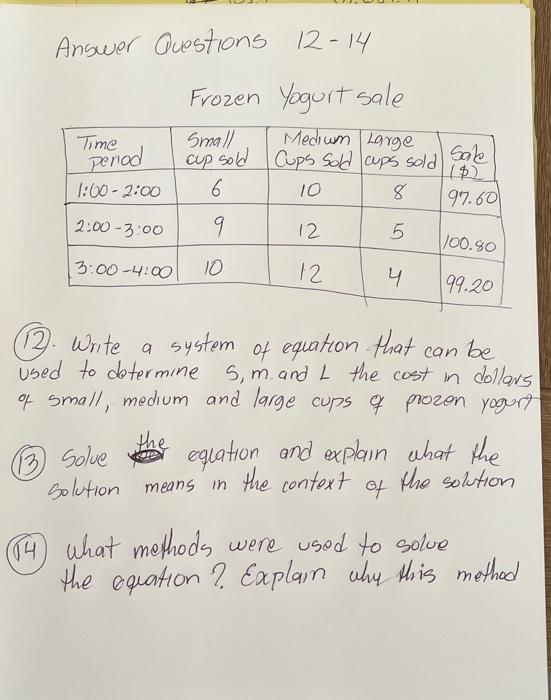 Answer Questions 12-14
Frozen Yogurt sale
Time period Small cup sold Medium Cups Sold Large cups sold Sale ($)
1:00-2:00 6 10 8 97.60
2:00-3:00 9 12 5 100.80
3:00-4:00 10 12 4 99.20
12. Write a system of equation that can be
used to determine S, m. and L the cost in dollars
of small, medium and large cups of prozen yogurt
13 Solve the equation and explain what the
solution means in the context of the solution
14 what methods were used to solve
the equation? Explain why this method